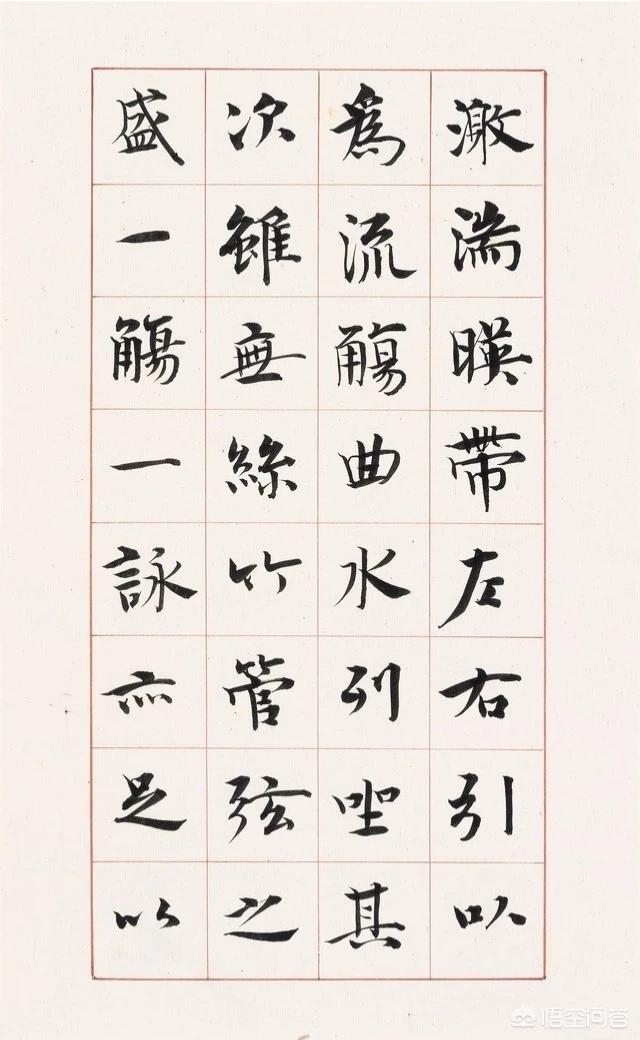 激湍暎帶左右引以
為流觴曲水列坐其
次雖無絲竹管弦之
盛一觴一詠亦足以
悟空问答